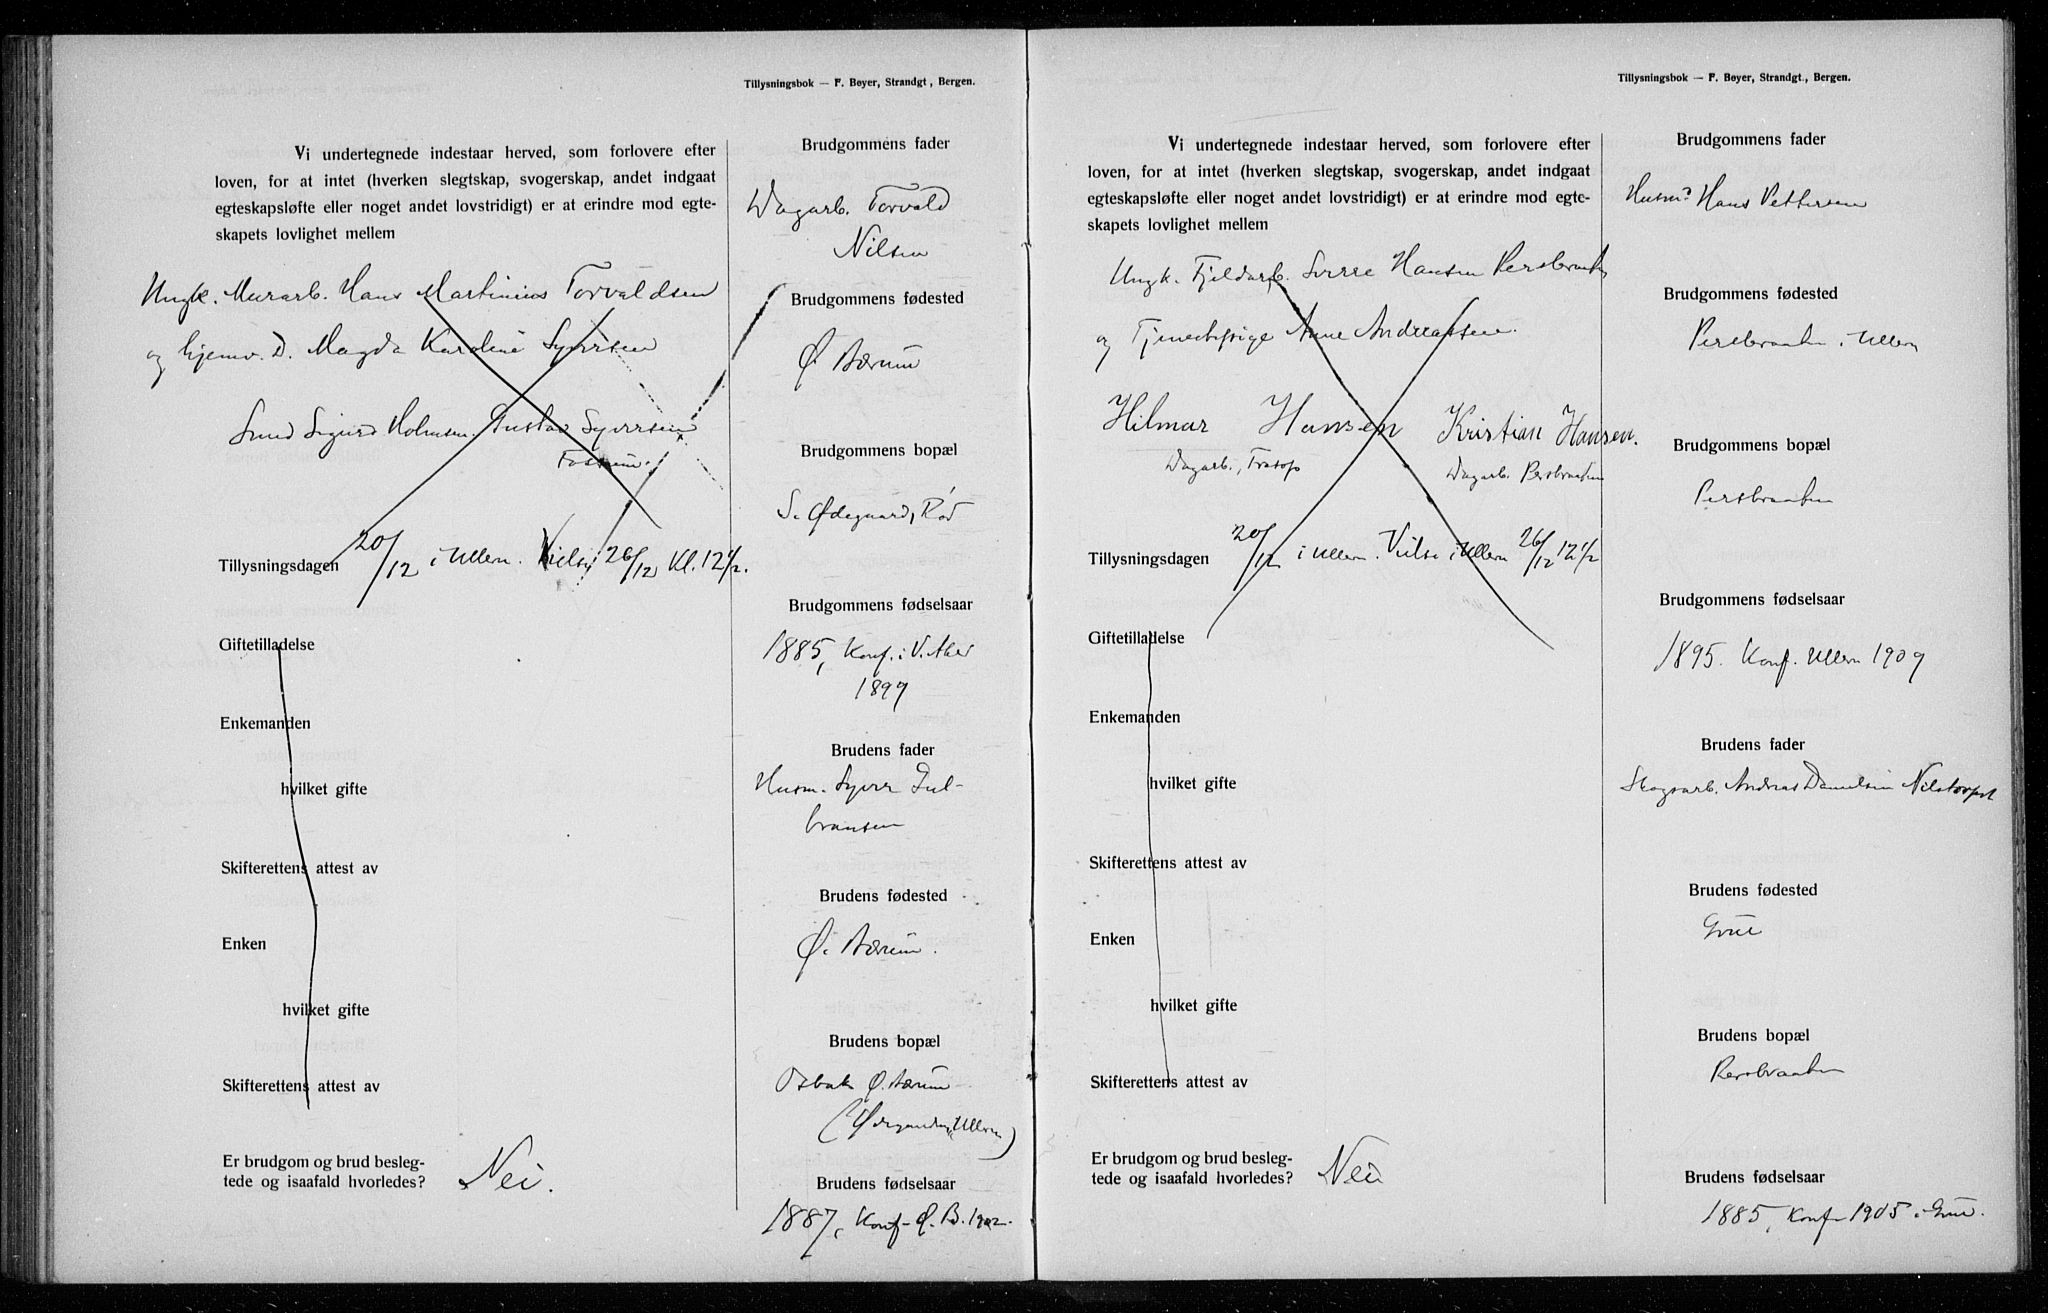 Tillysningsbok — F. Beyer, Strandgt, Bergen.
Vi undertegnede indestaar herved, som forlovere efter
loven, for at intet (hverken slegtskap, svogerskap, andet indgaat
egteskapsløfte eller noget andet lovstridigt) er at erindre mod egte-
skapets lovlighet mellem
Ungk. Murarb. Hans Martinius Torvaldsen
og hjemv. D. Magda Karoline Syversen
Sigurd Holmsen. Gustav Syversen
Fossum.
Tillysningsdagen 20/12 i Ullern. Vielse 26/12 Kl. 12 1/2.
Giftetilladelse
Enkemanden
hvilket gifte
Skifterettens attest av
Enken
hvilket gifte
Skifterettens attest av
Er brudgom og brud besleg-
tede og isaafald hvorledes? Nei.
Brudgommens fader
Dagarb. Torvald
Nilsen
Brudgommens fødested
Ø. Bærum
Brudgommens bopæl
S. Ødegaard, Rød
Brudgommens fødselsaar
1885, Konf. i V. Aker
1899
Brudens fader
Husm. Syver Gul-
bransen
Brudens fødested
Ø. Bærum.
Brudens bopæl
Ø. Bærum
Ullern)
Brudens fødselsaar
1887, Konf. Ø. B. 1902.
Tillysningsbok — F. Beyer, Strandgt., Bergen.
Vi undertegnede indestaar herved, som forlovere efter
loven, for at intet (hverken slegtskap, svogerskap, andet indgaat
egteskapsløfte eller noget andet lovstridigt) er at erindre mod egte-
skapets lovlighet mellem
Ungk. Fjeldarb. Sverre Hansen Persbraaten
og Tjenestepige Anne Andreassen.
Hilmar Hansen Kristian Hansen.
Dagarb., Dagarb. Persbraaten
Tillysningsdagen 20/12 i Ullern. Vielse i Ullern 26/12 12 1/2
Giftetilladelse
Enkemanden
hvilket gifte
Skifterettens attest av
Enken
hvilket gifte
Skifterettens attest av
Er brudgom og brud besleg-
tede og isaafald hvorledes? Nei
Brudgommens fader
Husm. Hans Pettersen
Brudgommens fødested
Persbraaten i Ullern
Brudgommens bopæl
Persbraaten
Brudgommens fødselsaar
1895. Konf. Ullern 1909
Brudens fader
Skogsarb. Andreas Danielsen
Brudens fødested
Grue
Brudens bopæl
Persbraaten
Brudens fødselsaar
1885, Konf. 1905 i Grue.